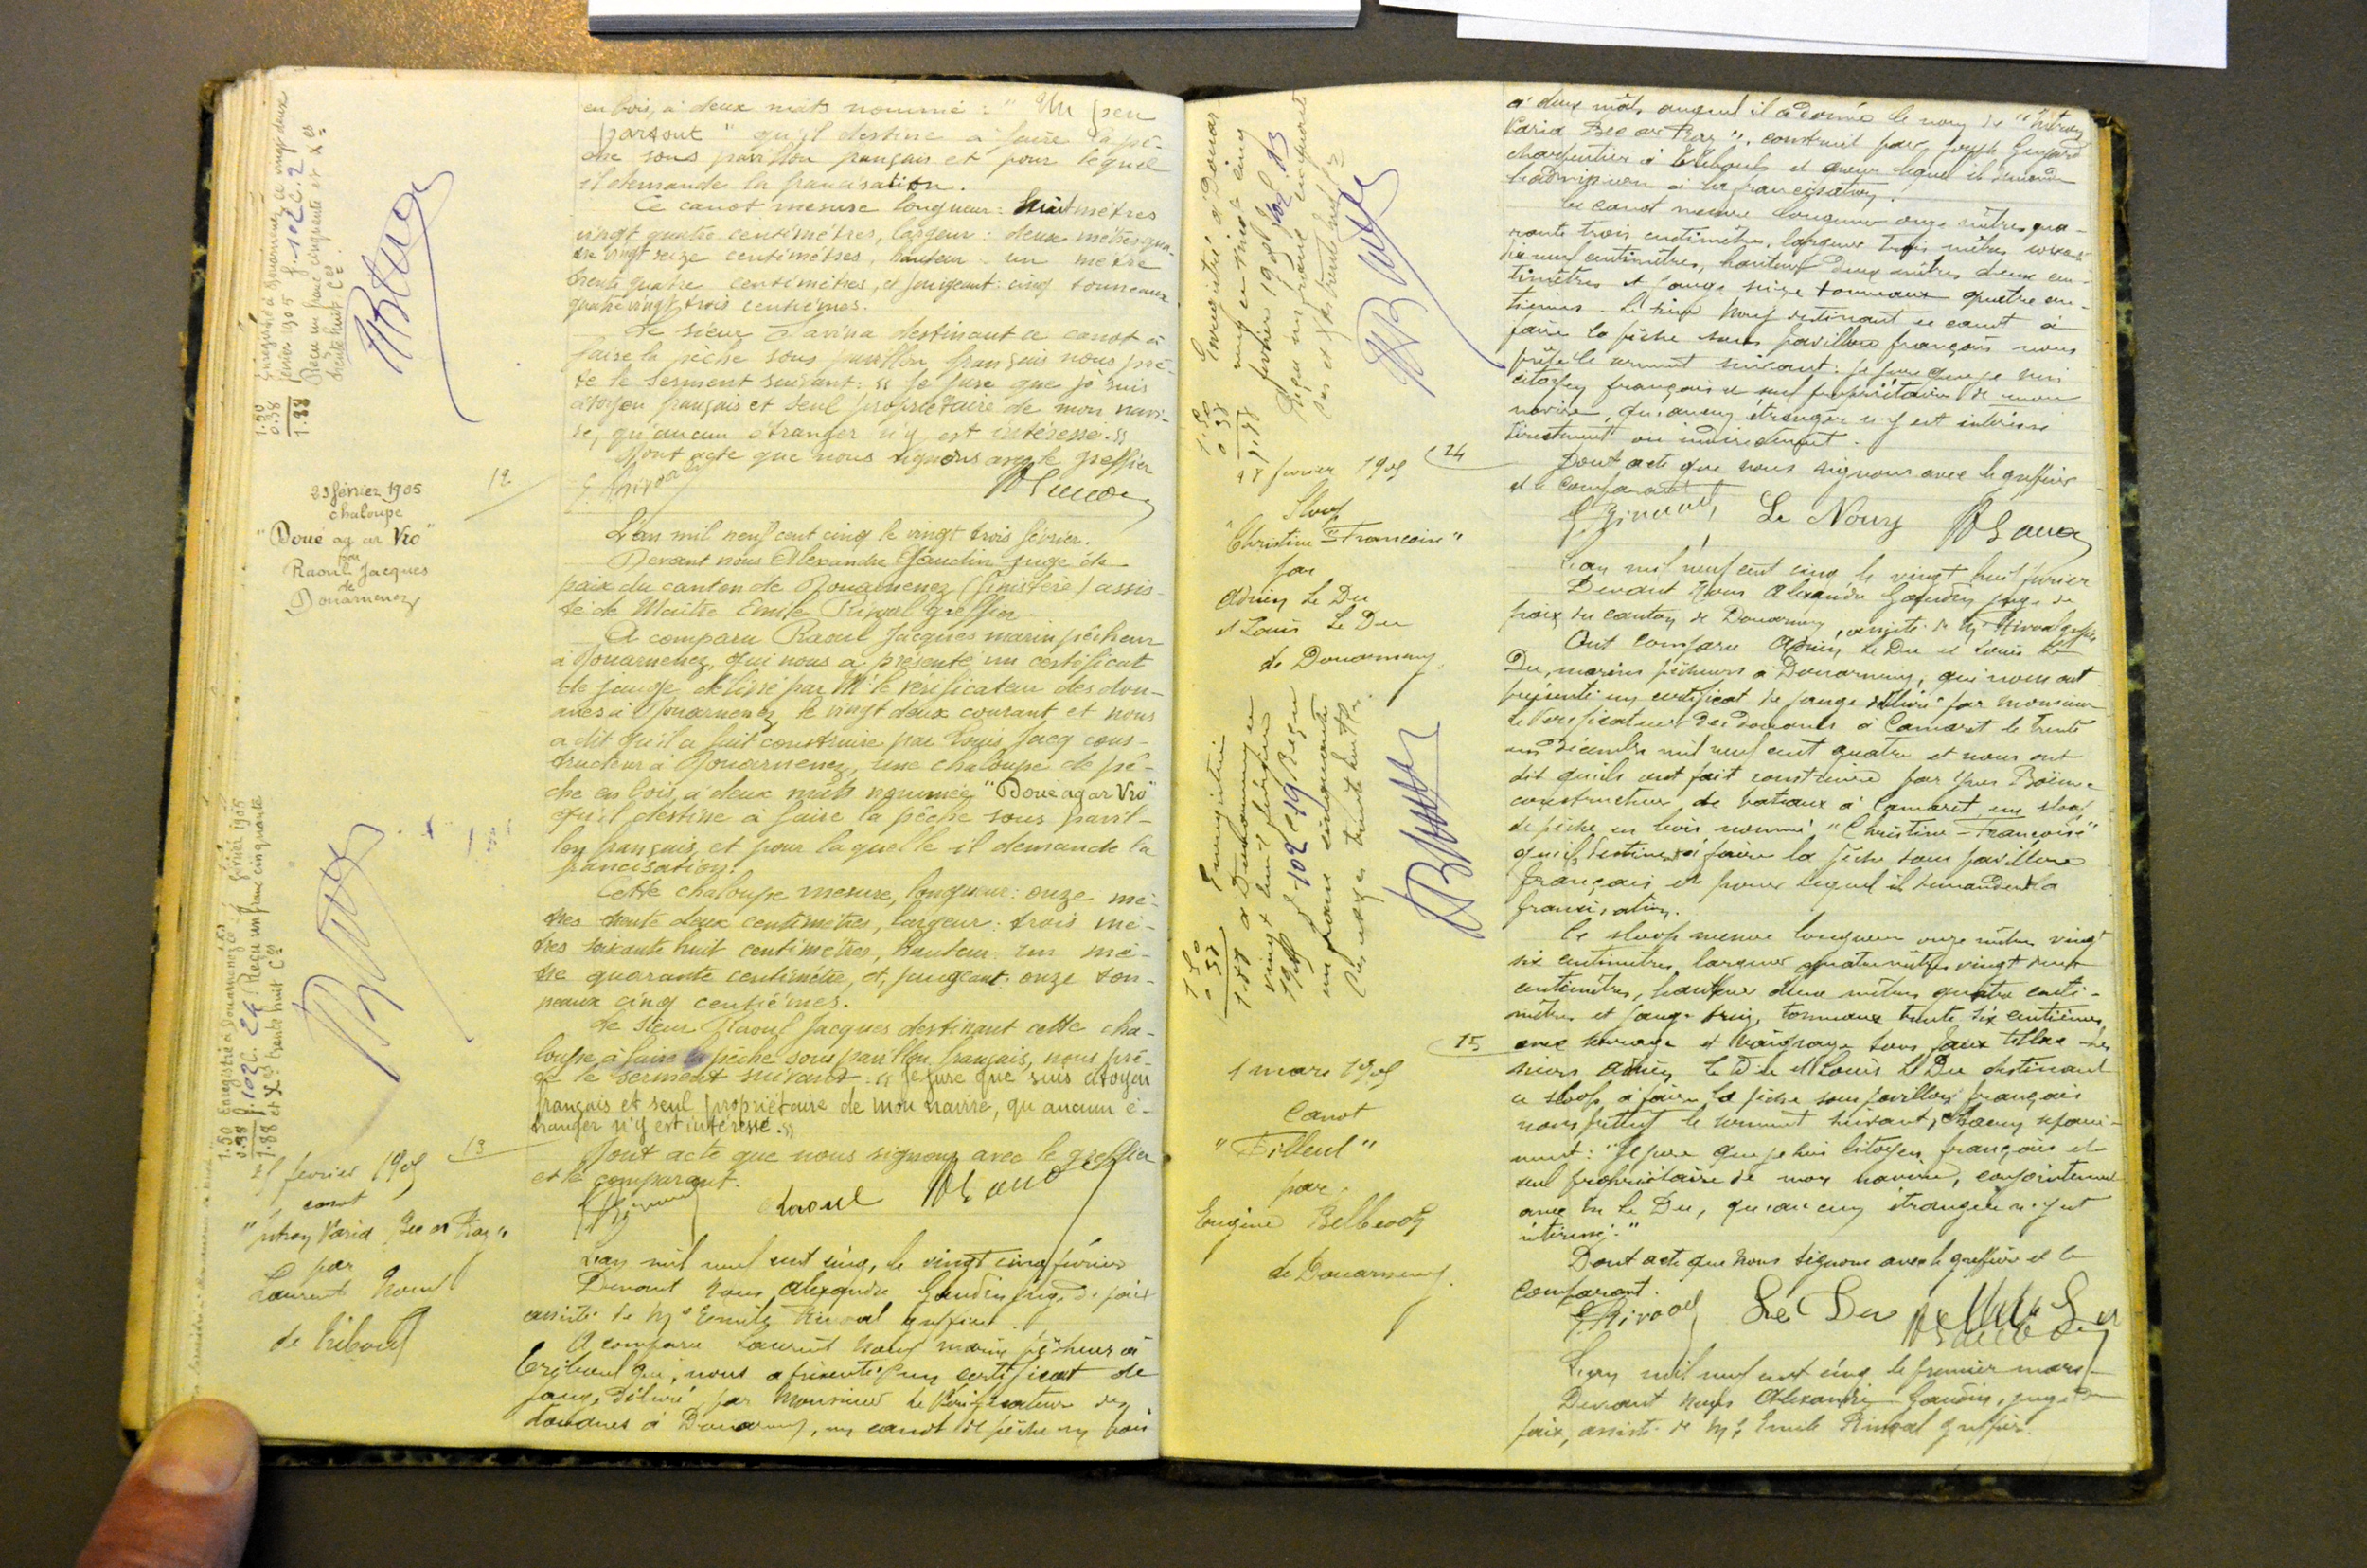 en bois, à deux mâts nommé : " Un peu
partout " qu'il destine à faire la pê-
che sous pavillon français et pour lequel
il demande la francisation.
Ce canot mesure longueur : huit mètres
vingt quatre centimètres, largeur : deux mètres qua-
tre vingt seize centimètres, hauteur un mètre
trente quatre centimètres, et jaugeant : cinq tonneaux
quatre vingt trois centièmes.
Le sieur Savina destinant ce canot à
faire la pêche sous pavillon français nous prê-
te le serment suivant : « Je jure que je suis
citoyen français et seul propriétaire de mon navi-
re, qu'aucun étranger n'y est intéressé. »
Dont acte que nous signons avec le greffier
Enregistré à Douarnenez le vingt deux
février 1905 f. 102 C. 2
Reçu un franc cinquante et Xes
trente huit Ces
1.50
0.38
1.88
12
23 février 1905
chaloupe
" Doué ag ar Vro "
par
Raoul Jacques
de
Douarnenez
L'an mil neuf cent cinq le vingt trois février.
Devant nous Alexandre Gaudin juge de
paix du canton de Douarnenez (Finistère) assis-
té de Maître Emile Rivoal greffier
A comparu Raoul Jacques marin pêcheur
à Douarnenez, qui nous a présenté un certificat
de jauge délivré par Mr le vérificateur des dou-
anes à Douarnenez le vingt deux courant et nous
a dit qu'il a fait construire par Louis Jacq cons-
tructeur à Douarnenez, une chaloupe de pê-
che en bois, à deux mâts nommée "Doué ag ar Vro"
qu'il destine à faire la pêche sous pavil-
lon français, et pour laquelle il demande la
francisation.
Cette chaloupe mesure, longueur : onze mè-
tres trente deux centimètres, largeur : trois mè-
tres soixante huit centimètres, hauteur un mè-
tre quarante centimètre, et jaugeant : onze ton-
neaux cinq centièmes.
Le sieur Raoul Jacques destinant cette cha-
loupe à faire la pêche sous pavillon français, nous prê-
te le serment suivant : « Je jure que suis citoyen
français et seul propriétaire de mon navire, qu'aucun é-
tranger n'y est intéressé. »
Dont acte que nous signons avec le greffier
et le comparant.
Raoul
1.50 Enregistré à Douarnenez le
0.38 f. 102 C. 24 Reçu un franc cinquante
1.88 et Xes trente huit Ces
février 1905
13
février 1905
canot
" Itron Varia Bec ar Raz "
par
Laurent Nouy
de Tréboul
L'an mil neuf cent cinq, le vingt cinq février
Devant nous Alexandre Gaudin juge de paix
assisté de Me Emile Rivoal greffier.
A comparu Laurent Nouy marin pêcheur à
Tréboul qui, nous a présenté un certificat de
jauge délivré par Monsieur le Vérificateur des
douanes à Douarnenez, un canot de pêche en bois
à deux mâts auquel il a donné le nom de " Itron
Varia Bec ar Raz ", construit par Joseph
charpentier à Tréboul et pour lequel il demande
l'admission à la francisation.
Ce canot mesure longueur onze mètres qua-
rante trois centimètres, largeur trois mètres soixante
dix neuf centimètres, hauteur deux mètres deux cen-
timètres et jauge seize tonneaux quatre cen-
tièmes. Le sieur Nouy destinant ce canot à
faire la pêche sous pavillon français nous
prête le serment suivant : je jure que je suis
citoyen français et seul propriétaire de mon
navire, qu'aucun étranger n'y est intéressé
directement ou indirectement.
Dont acte que nous signons avec le greffier
et le comparant.
Le Nouy
Enregistré à Douar-
nenez le vingt cinq
février 1905 fol 102 C 13
Reçu un franc cinquante
1.50
0.38
1.88
24
28 février 1905
Sloop
" Christine = Françoise "
par
Adrien Le Du
et Louis Le Du
de Douarnenez.
L'an mil neuf cent cinq le vingt huit février
Devant nous Alexandre Gaudin juge de
paix du canton de Douarnenez, assisté de Me Rivoal greffier
Ont comparu Adrien Le Du et Louis Le
Du, marins pêcheurs à Douarnenez, qui nous ont
présenté un certificat de jauge délivré par monsieur
le Vérificateur des douanes à Camaret le trente
un décembre mil neuf cent quatre et nous ont
dit qu'ils ont fait construire par Yves
constructeur de bateaux à Camaret, un sloop
de pêche en bois nommé " Christine = Françoise "
qu'ils destinent à faire la pêche sous pavillon
français et pour lequel ils demandent la
francisation.
Ce sloop mesure longueur onze mètres vingt
six centimètres, largeur quatre mètres vingt deux
centimètres, hauteur deux mètres quatre centi-
mètres et jauge treize tonneaux trente six centièmes,
avec serrage et vaigrage sous faux tillac. Les
sieurs Adrien Le Du et Louis Le Du destinant
ce sloop à faire la pêche sous pavillon français
nous prêtent le serment suivant, chacun séparé-
ment : "Je jure que je suis citoyen français et
seul propriétaire de mon navire, conjointement
avec Le Du, qu'aucun étranger n'y est
intéressé."
Dont acte que nous signons avec le greffier et le
comparant.
Le Du
Enregistré
à Douarnenez le
vingt huit février
1905 f 102 C 19 Reçu
un franc cinquante
Xes trente huit Ces
1.50
0.38
1.88
15
1 mars 1905
Canot
" Tilleul "
par
Eugène Belbeoch
de Douarnenez.
L'an mil neuf cent cinq le premier mars
Devant nous Alexandre Gaudin, juge de
paix, assisté de Me Emile Rivoal greffier.